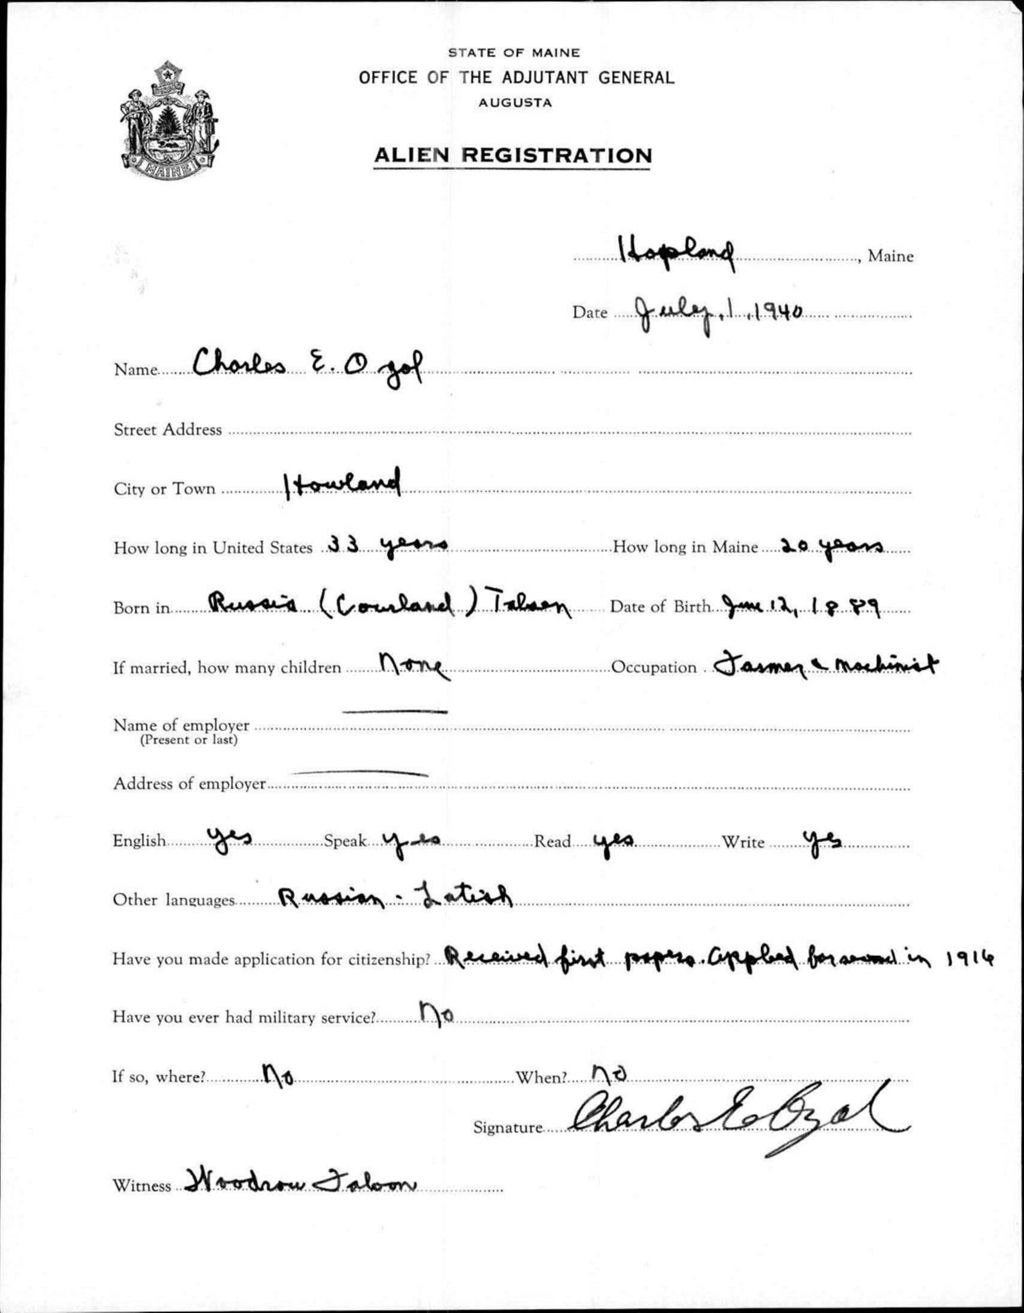 STATE OF MAINE
OFFICE OF THE ADJUTANT GENERAL
AUGUSTA
ALIEN REGISTRATION
MAINE
Hopland, Maine
Date July, 1, 1940
Name Charles E. Ozol
Street Address
City or Town Howland
How long in United States 33 years How long in Maine 20 years
Born in Russia (Courland) Talsen Date of Birth June 12, 1889
If married, how many children None Occupation Farmer & Machinist
Name of employer
(Present or last)
Address of employer
English yes Speak yes Read yes Write yes
Other languages Russian - Latish
Have you made application for citizenship? Received first papers. Applied for second in 1916
Have you ever had military service? No
If so, where? No When? No
Signature Charles E Ozol
Witness Woodrow